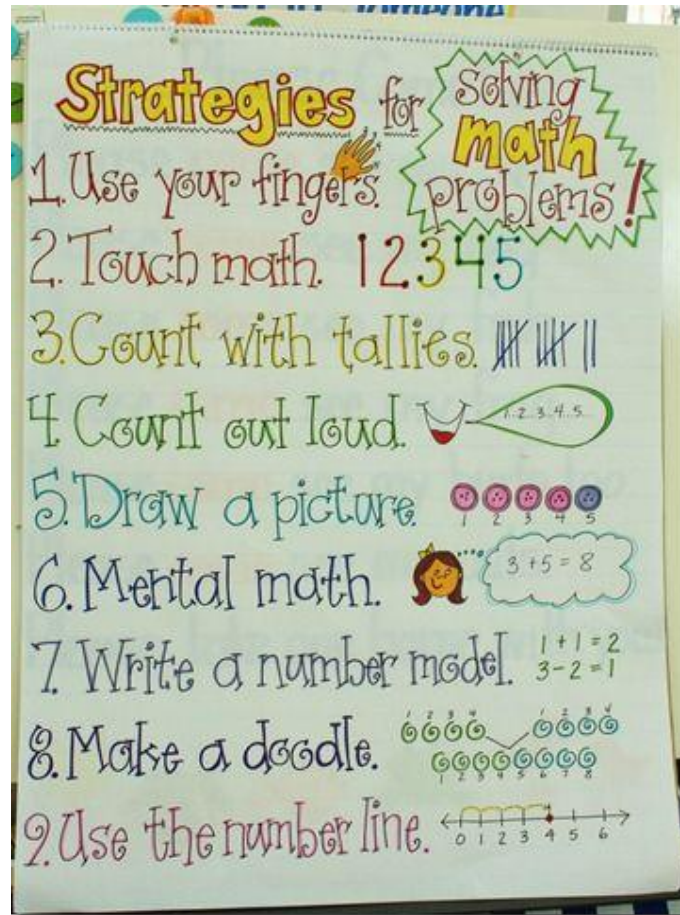 Strategies for solving math problems!
1. Use your fingers.
2. Touch math. 1 2 3 4 5
3. Count with tallies.
4. Count out loud. 1..2..3..4..5..
5. Draw a picture.
1 2 3 4 5
6. Mental math. 3 + 5 = 8
7. Write a number model. 1 + 1 = 2
3 - 2 = 1
1 2 3 4 1 2 3 4
8. Make a doodle.
1 2 3 4 5 6 7 8
9. Use the number line.
0 1 2 3 4 5 6